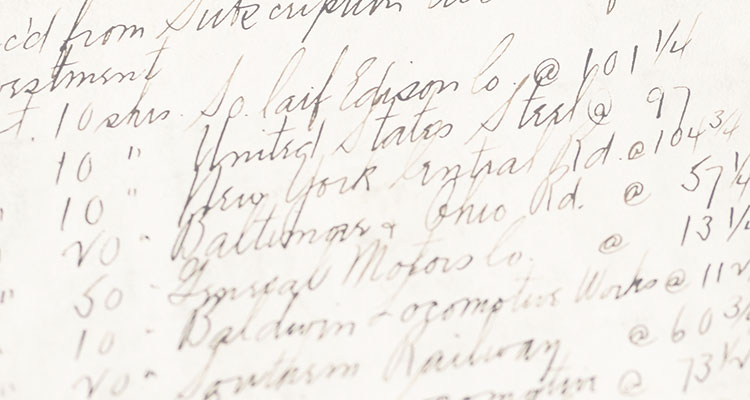 c'd from Subscription
vestment
10 shrs. So. Calif Edison Co. @ 101 1/4
10 " United States Steel @ 97
10 " New York Central Rd. @ 104 3/4
20 " Baltimore & Ohio Rd. @ 57 1/4
50 " General Motors Co. @ 13 1/4
10 " Baldwin Locomotive Works @ 112
20 " Southern Railway @ 60 3/
omotive @ 73 1/2